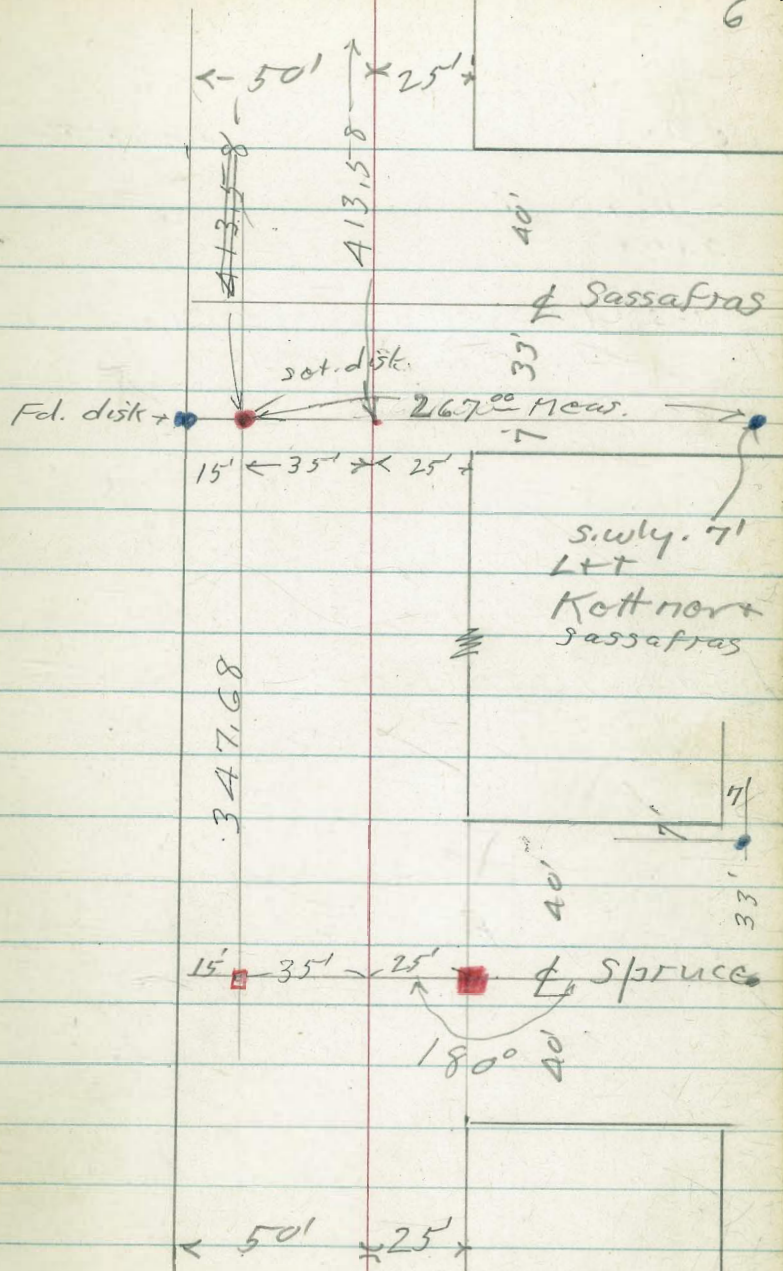 6
50' 25'
413.58
413.58
40'
℄ Sassafras
33'
set. disk
Fd. disk 267.00 Meas.
7'
15' 35' 25'
s.wly. 7'
L++
sassafras
347.68
7'
7'
40'
33'
15' 35' 25' ℄ Spruce
180°
40'
50' 25'